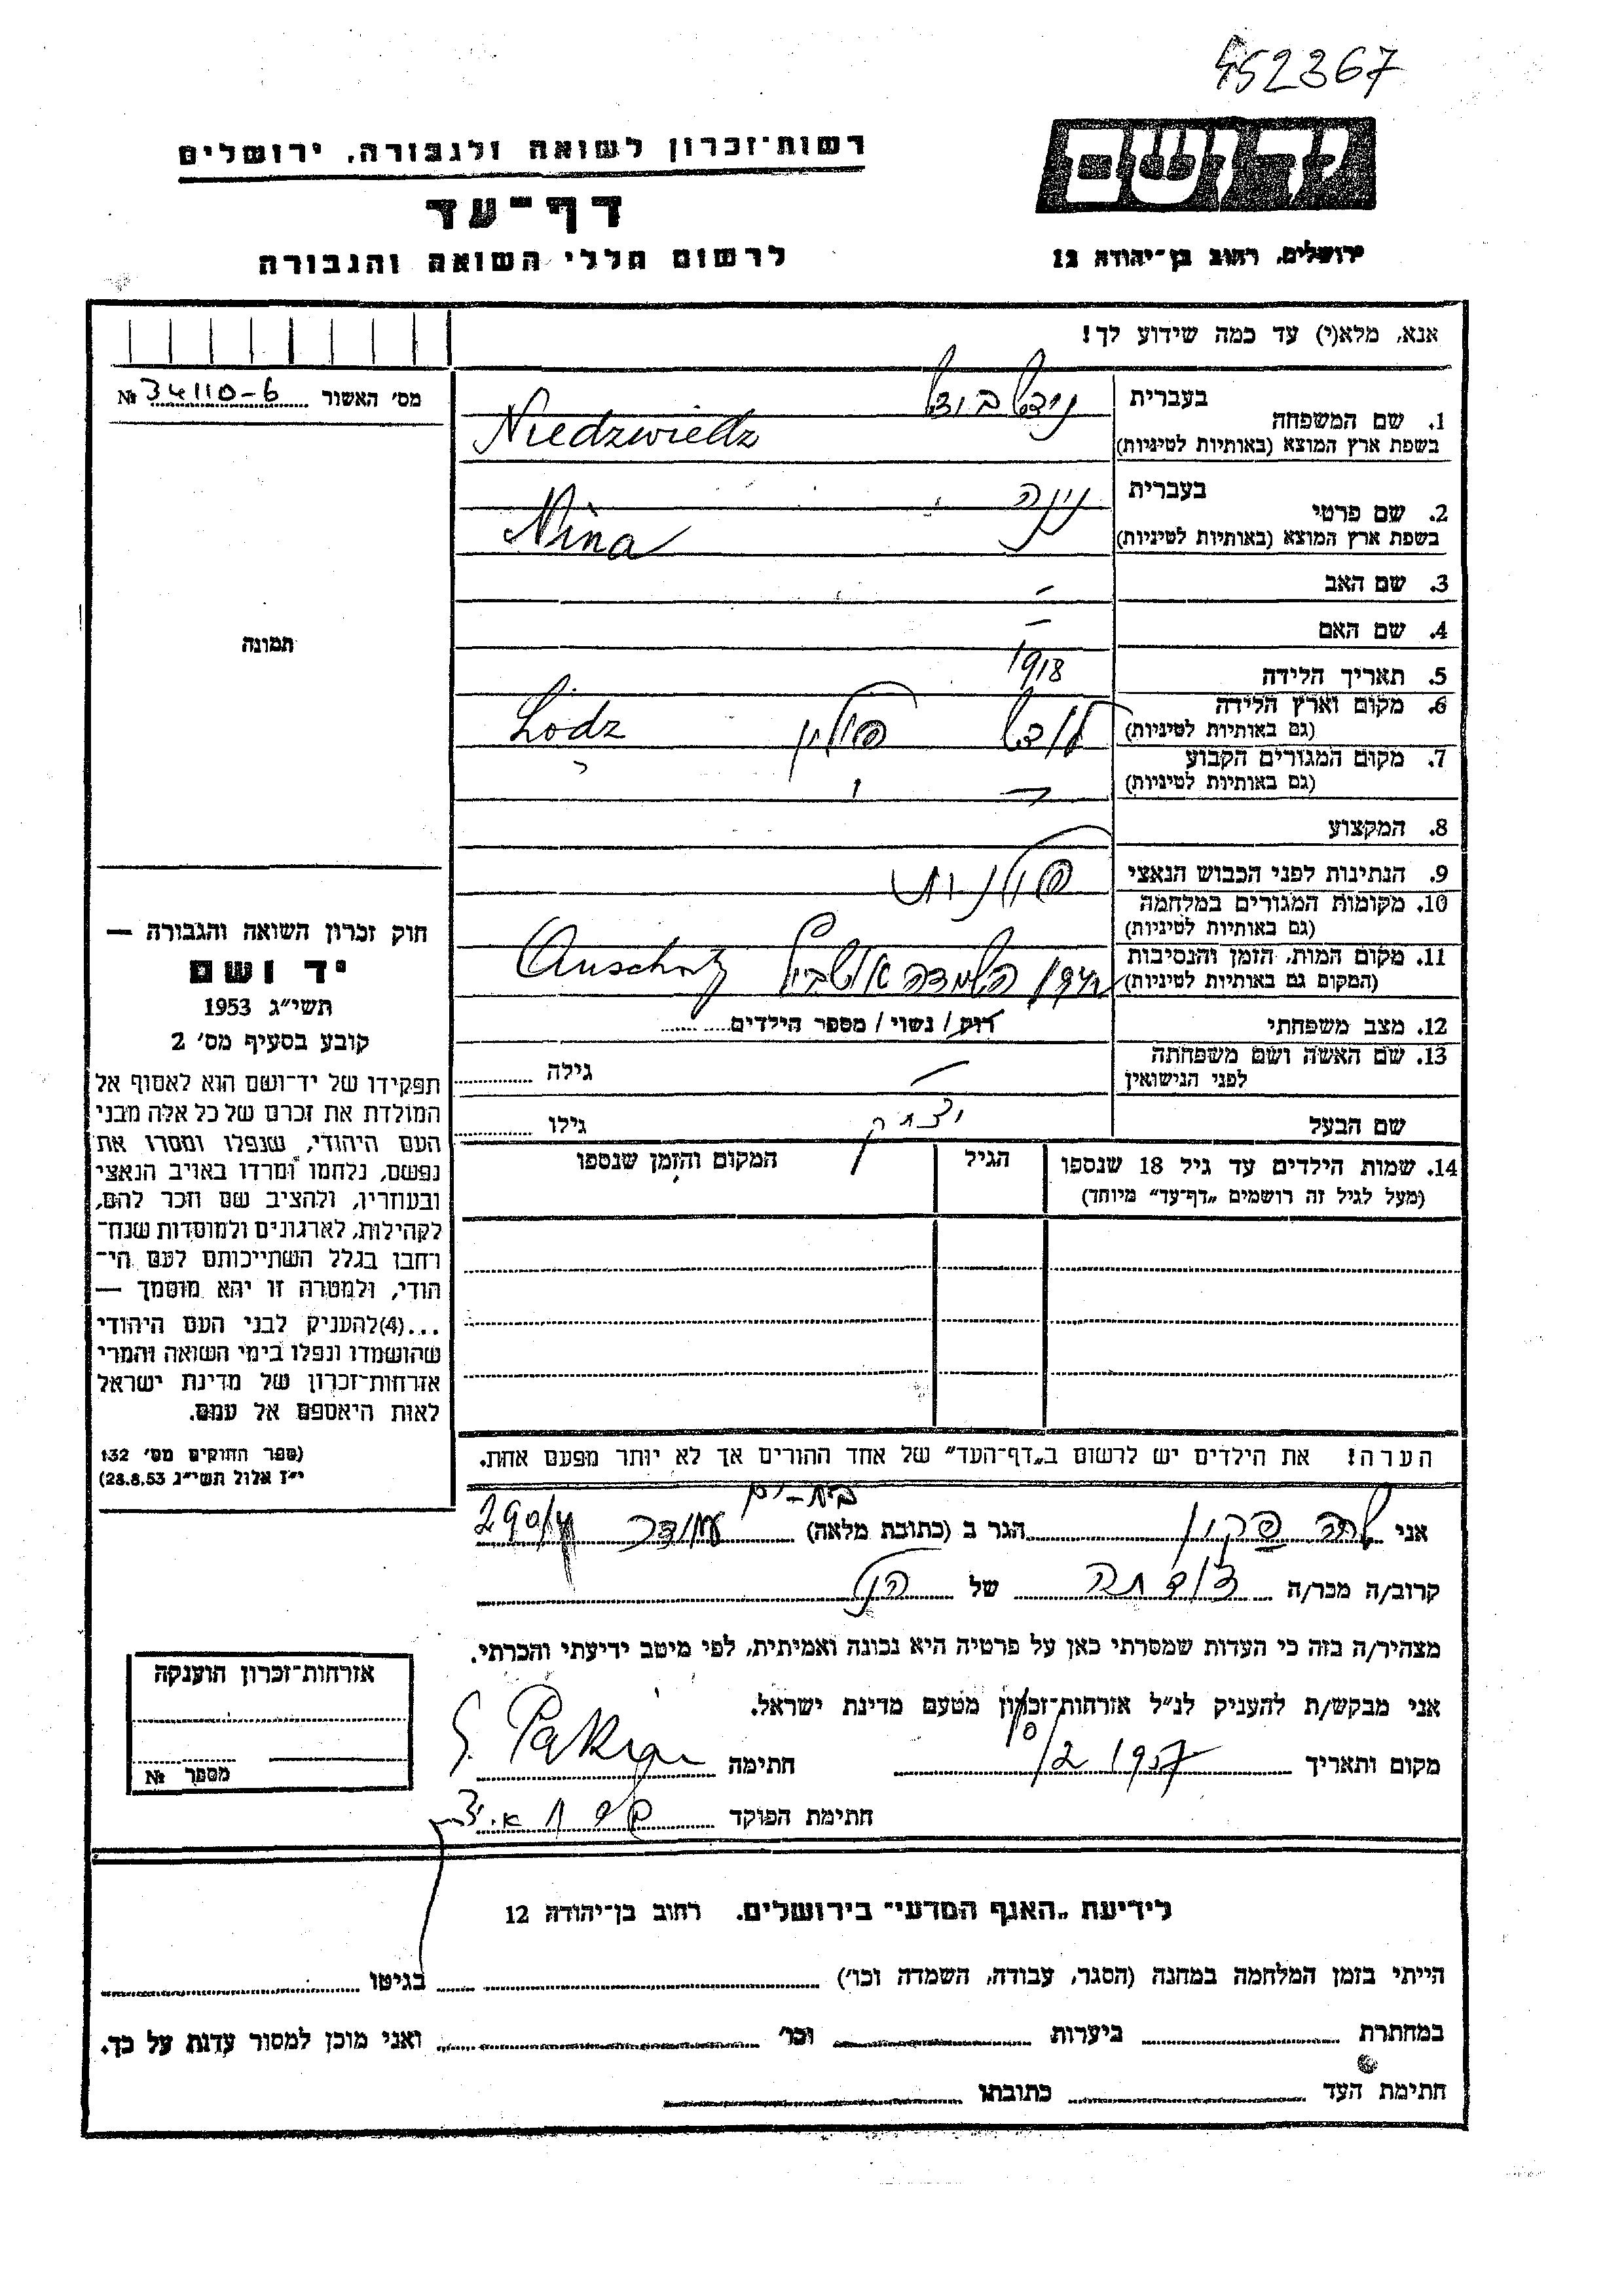 452367
יד ושם
רשות־זכרון לשואה ולגבורה, ירושלים
דף־עד
לרשום חללי השואה והגבורה
ירושלים, רחוב בן־יהודה 12
אנא, מלא(י) עד כמה שידוע לך!
מס׳ האשור 34110-6 №
תמונה
חוק זכרון השואה והגבורה —
יד ושם
תשי״ג 1953
קובע בסעיף מס׳ 2
תפקידו של יד־ושם הוא לאסוף אל
המולדת את זכרם של כל אלה מבני
העם היהודי, שנפלו ומסרו את
נפשם, נלחמו ומרדו באויב הנאצי
ובעוזריו, ולהציב שם וזכר להם,
לקהילות, לארגונים ולמוסדות שנח־
רחבו בגלל השתייכותם לעם הי־
הודי, ולמטרה זו יהא מוסמך —
...(4)להעניק לבני העם היהודי
שהושמדו ונפלו בימי השואה והמרי
אזרחות־זכרון של מדינת ישראל
לאות היאספם אל עמם.
(ספר החוקים מס׳ 132
י״ז אלול תשי״ג 28.8.53)
בעברית
1. שם המשפחה
בשפת ארץ המוצא (באותיות לטיניות) Niedzwiedz
בעברית נינה
2. שם פרטי
בשפת ארץ המוצא (באותיות לטיניות) Nina
3. שם האב –
4. שם האם –
5. תאריך הלידה 1918
6. מקום וארץ הלידה לודז׳ פולין Lodz
(גם באותיות לטיניות)
7. מקום המגורים הקבוע
(גם באותיות לטיניות)
8. המקצוע
9. הנתינות לפני הכבוש הנאצי פולנית
10. מקומות המגורים במלחמה
(גם באותיות לטיניות)
11. מקום המות, הזמן והנסיבות השמדה
(המקום גם באותיות לטיניות)
12. מצב משפחתי רווק / נשוי / מספר הילדים
13. שם האשה ושם משפחתה – גילה
לפני הנישואין
שם הבעל יצחק גילו
14. שמות הילדים עד גיל 18 שנספו הגיל המקום והזמן שנספו
(מעל לגיל זה רושמים „דף־עד״ מיוחד)
הערה! את הילדים יש לרשום ב„דף־העד״ של אחד ההורים אך לא יותר מפעם אחת.
בת-ים
אני שרה פקין הגר ב (כתובת מלאה) עמידר
קרוב/ה מכר/ה דודתה של הנ״ל
מצהיר/ה בזה כי העדות שמסרתי כאן על פרטיה היא נכונה ואמיתית, לפי מיטב ידיעתי והכרתי.
אני מבקש/ת להעניק לנ״ל אזרחות־זכרון מטעם מדינת ישראל.
מקום ותאריך 10/2 1957 חתימה
חתימת הפוקד
אזרחות־זכרון הוענקה
מספר №
לידיעת „האגף המדעי״ בירושלים, רחוב בן־יהודה 12
הייתי בזמן המלחמה במחנה (הסגר, עבודה, השמדה וכו׳) בגיטו
במחתרת ביערות וכו׳ ואני מוכן למסור עדות על כך.
חתימת העד כתובתו